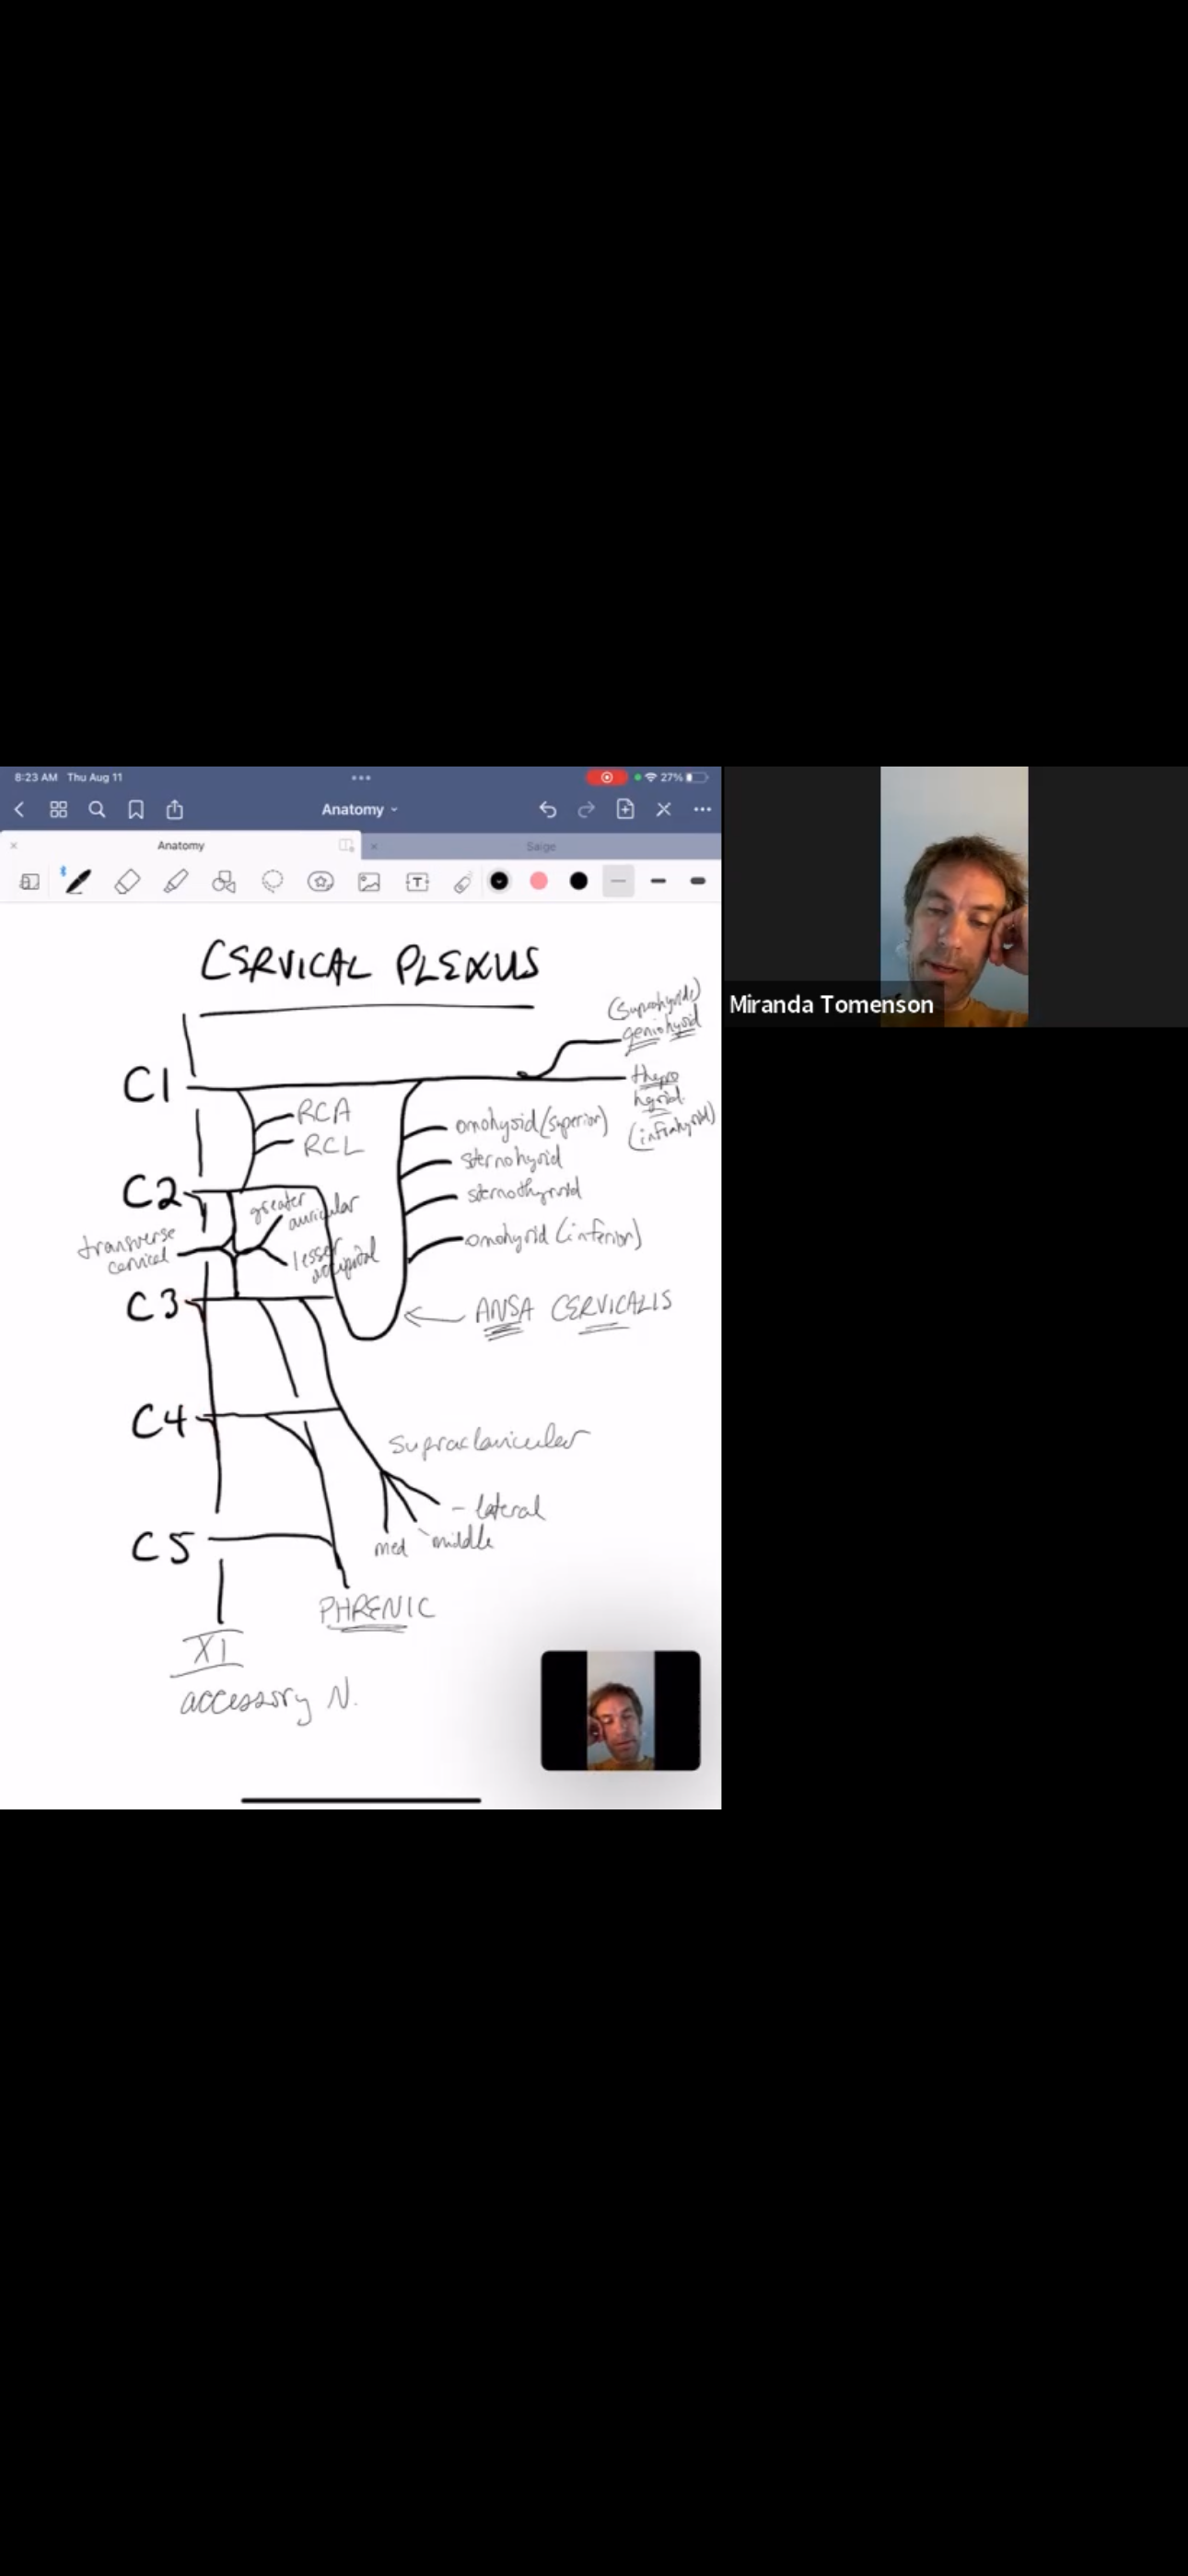 8:23 AM Thu Aug 11
27%
Anatomy
Anatomy
Saige
CERVICAL PLEXUS
geniohyoid
C1
hyoid
RCA
RCL
omohyoid (superior)
sternohyoid
sternothyroid
omohyoid (inferior)
C2
greater
auricular
transverse
cervical
lesser
occipital
C3
ANSA CERVICALIS
C4
supraclavicular
- lateral
middle
med
C5
PHRENIC
XI
accessory N.
Miranda Tomenson